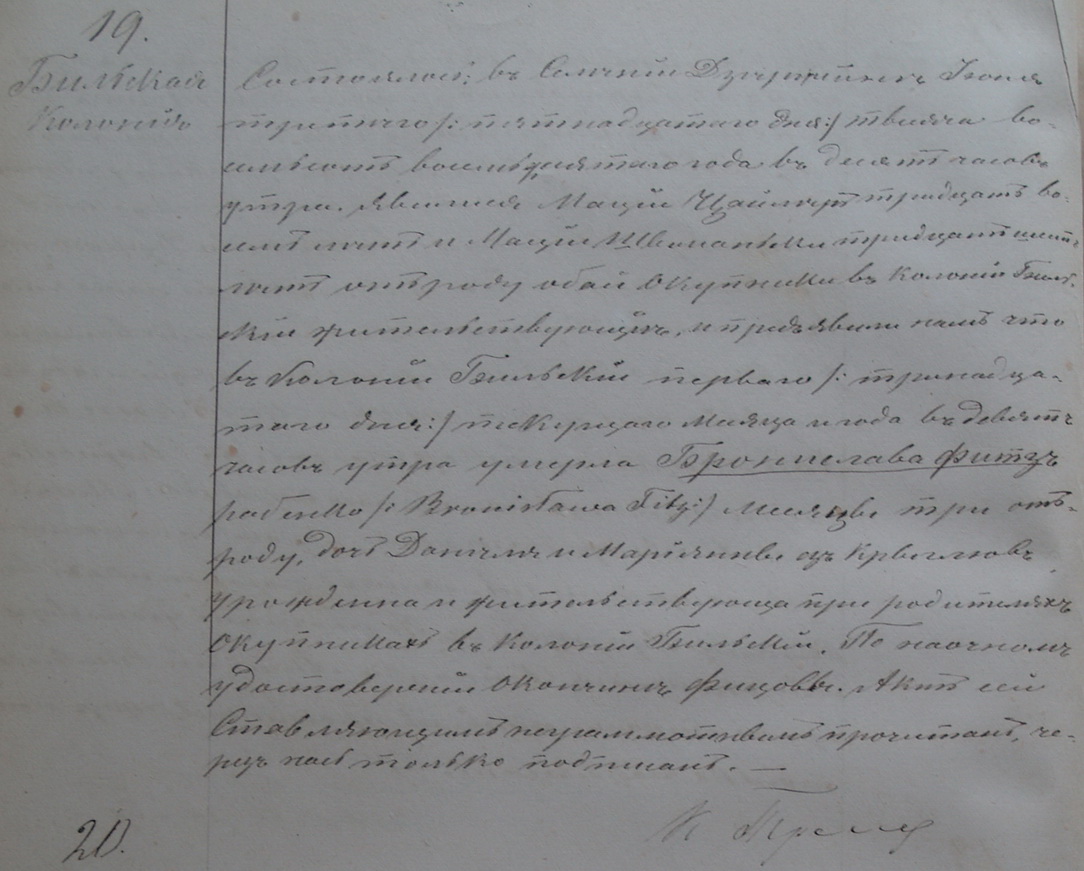 19.
Бильская
Колонія
Состоялось въ Селении Іюля
третьяго /: пятнадцатаго дня :/ тысяча во-
семьсотъ восемьдесятаго года въ десять часовъ
утра. Явились Мацѣй тридцать во-
семь лѣтъ и Мацѣй тридцать шесть
лѣтъ отъ роду обаи Окупники въ Колоніи Биль-
скій жительствующіе, и предъявили намъ что
въ Колоніи Бильскій перваго /: тринадца-
таго дня :/ текущаго Месяца и года въ девять
часовъ утра умерла Бронислава Фитзъ
ребенко /: Bronisława Fitz :/ месяцы три отъ-
роду, дочь Данеля и Маріянны изъ
урожденна и жительствующа при родителяхъ
Окупникахъ въ Колоніи Бильскій. По наочномъ
удостовереніи Кончины Фицовы. Актъ сей
Ставляющимъ неграммотнымъ прочитанъ, че-
резъ насъ только подписанъ. —
20.